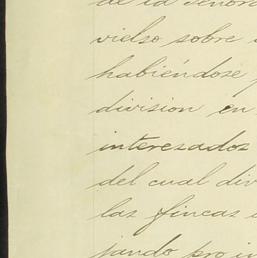 de la Señora
vielso sobre
habiéndose
division en
interesados
del cual div
las fincas
jando pro in